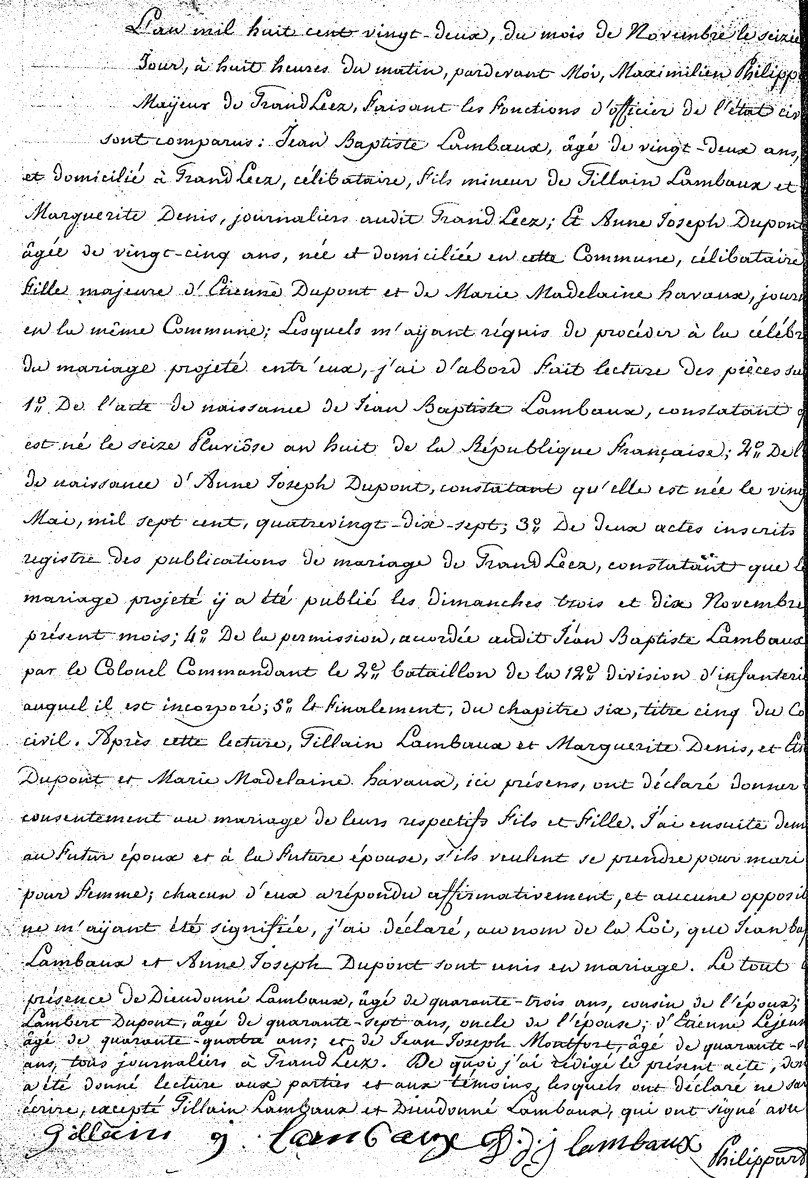 L'an mil huit cent vingt-deux, du mois de Novembre le seizie
Jour, à huit heures du matin, pardevant Moi, Maximilien Philipp
Maÿeur de Grand Leez, faisant les fonctions d'officier de l'état civ
sont comparus: Jean Baptiste Lambaux, âgé de vingt-deux ans,
et domicilié à Grand Leez, célibataire, fils mineur de Gillain Lambaux et
Marguerite Denis, journaliers audit Grand Leez; Et Anne Joseph Dupont
âgée de vingt-cinq ans, née et domiciliée en cette Commune, célibataire
fille majeure d'Etienne Dupont et de Marie Madelaine havaux, jour
en la même Commune; Lesquels m'aÿant réquis de procéder à la célébr
du mariage projeté entr'eux, j'ai d'abord fait lecture des pièces su
1º De l'acte de naissance de Jean Baptiste Lambaux, constatant q
est né le seize Pluviôse an huit de la République française; 2º De l'
de naissance d'Anne Joseph Dupont, constatant qu'elle est née le ving
Mai, mil sept cent, quatrevingt-dix-sept; 3º De deux actes inscrits
registre des publications de mariage de Grand Leez, constatant que l
mariage projeté ÿ a été publié les dimanches trois et dix Novembre
présent mois; 4º De la permission, acordée audit Jean Baptiste Lambaux
par le Colonel Commandant le 2º bataillon de la 12º division d'infanteri
auquel il est incorporé; 5º Et finalement, du chapitre six, titre cinq du Co
civil. Après cette lecture, Gillain Lambaux et Marguerite Denis, et Eti
Dupont et Marie Madelaine havaux, ici présens, ont déclaré donner
consentement au mariage de leurs respectifs fils et fille. J'ai ensuite dem
au futur époux et à la future épouse, s'ils veulent se prendre pour mari
pour femme; chacun d'eux a répondu affirmativement, et aucune opposit
ne m'aÿant été signifiée, j'ai déclaré, au nom de la Loi, que Jean Ba
Lambaux et Anne Joseph Dupont sont unis en mariage. Le tout
présence de Dieudonné Lambaux, âgé de quarante-trois ans, cousin de l'époux;
Lambert Dupont, âgé de quarante-sept ans, oncle de l'épouse; d'Etienne Lejeun
âgé de quarante-quatre ans; et de Jean Joseph Montfort, âgé de quarante-s
ans, tous journaliers à Grand Leez. De quoi j'ai rédigé le présent acte, don
a été donné lecture aux parties et aux témoins, lesquels ont déclaré ne sav
écrire, excepté Gillain Lambaux et Dieudonné Lambaux, qui ont signé avec
gillain j lambaux D. j. j lambaux Philippard